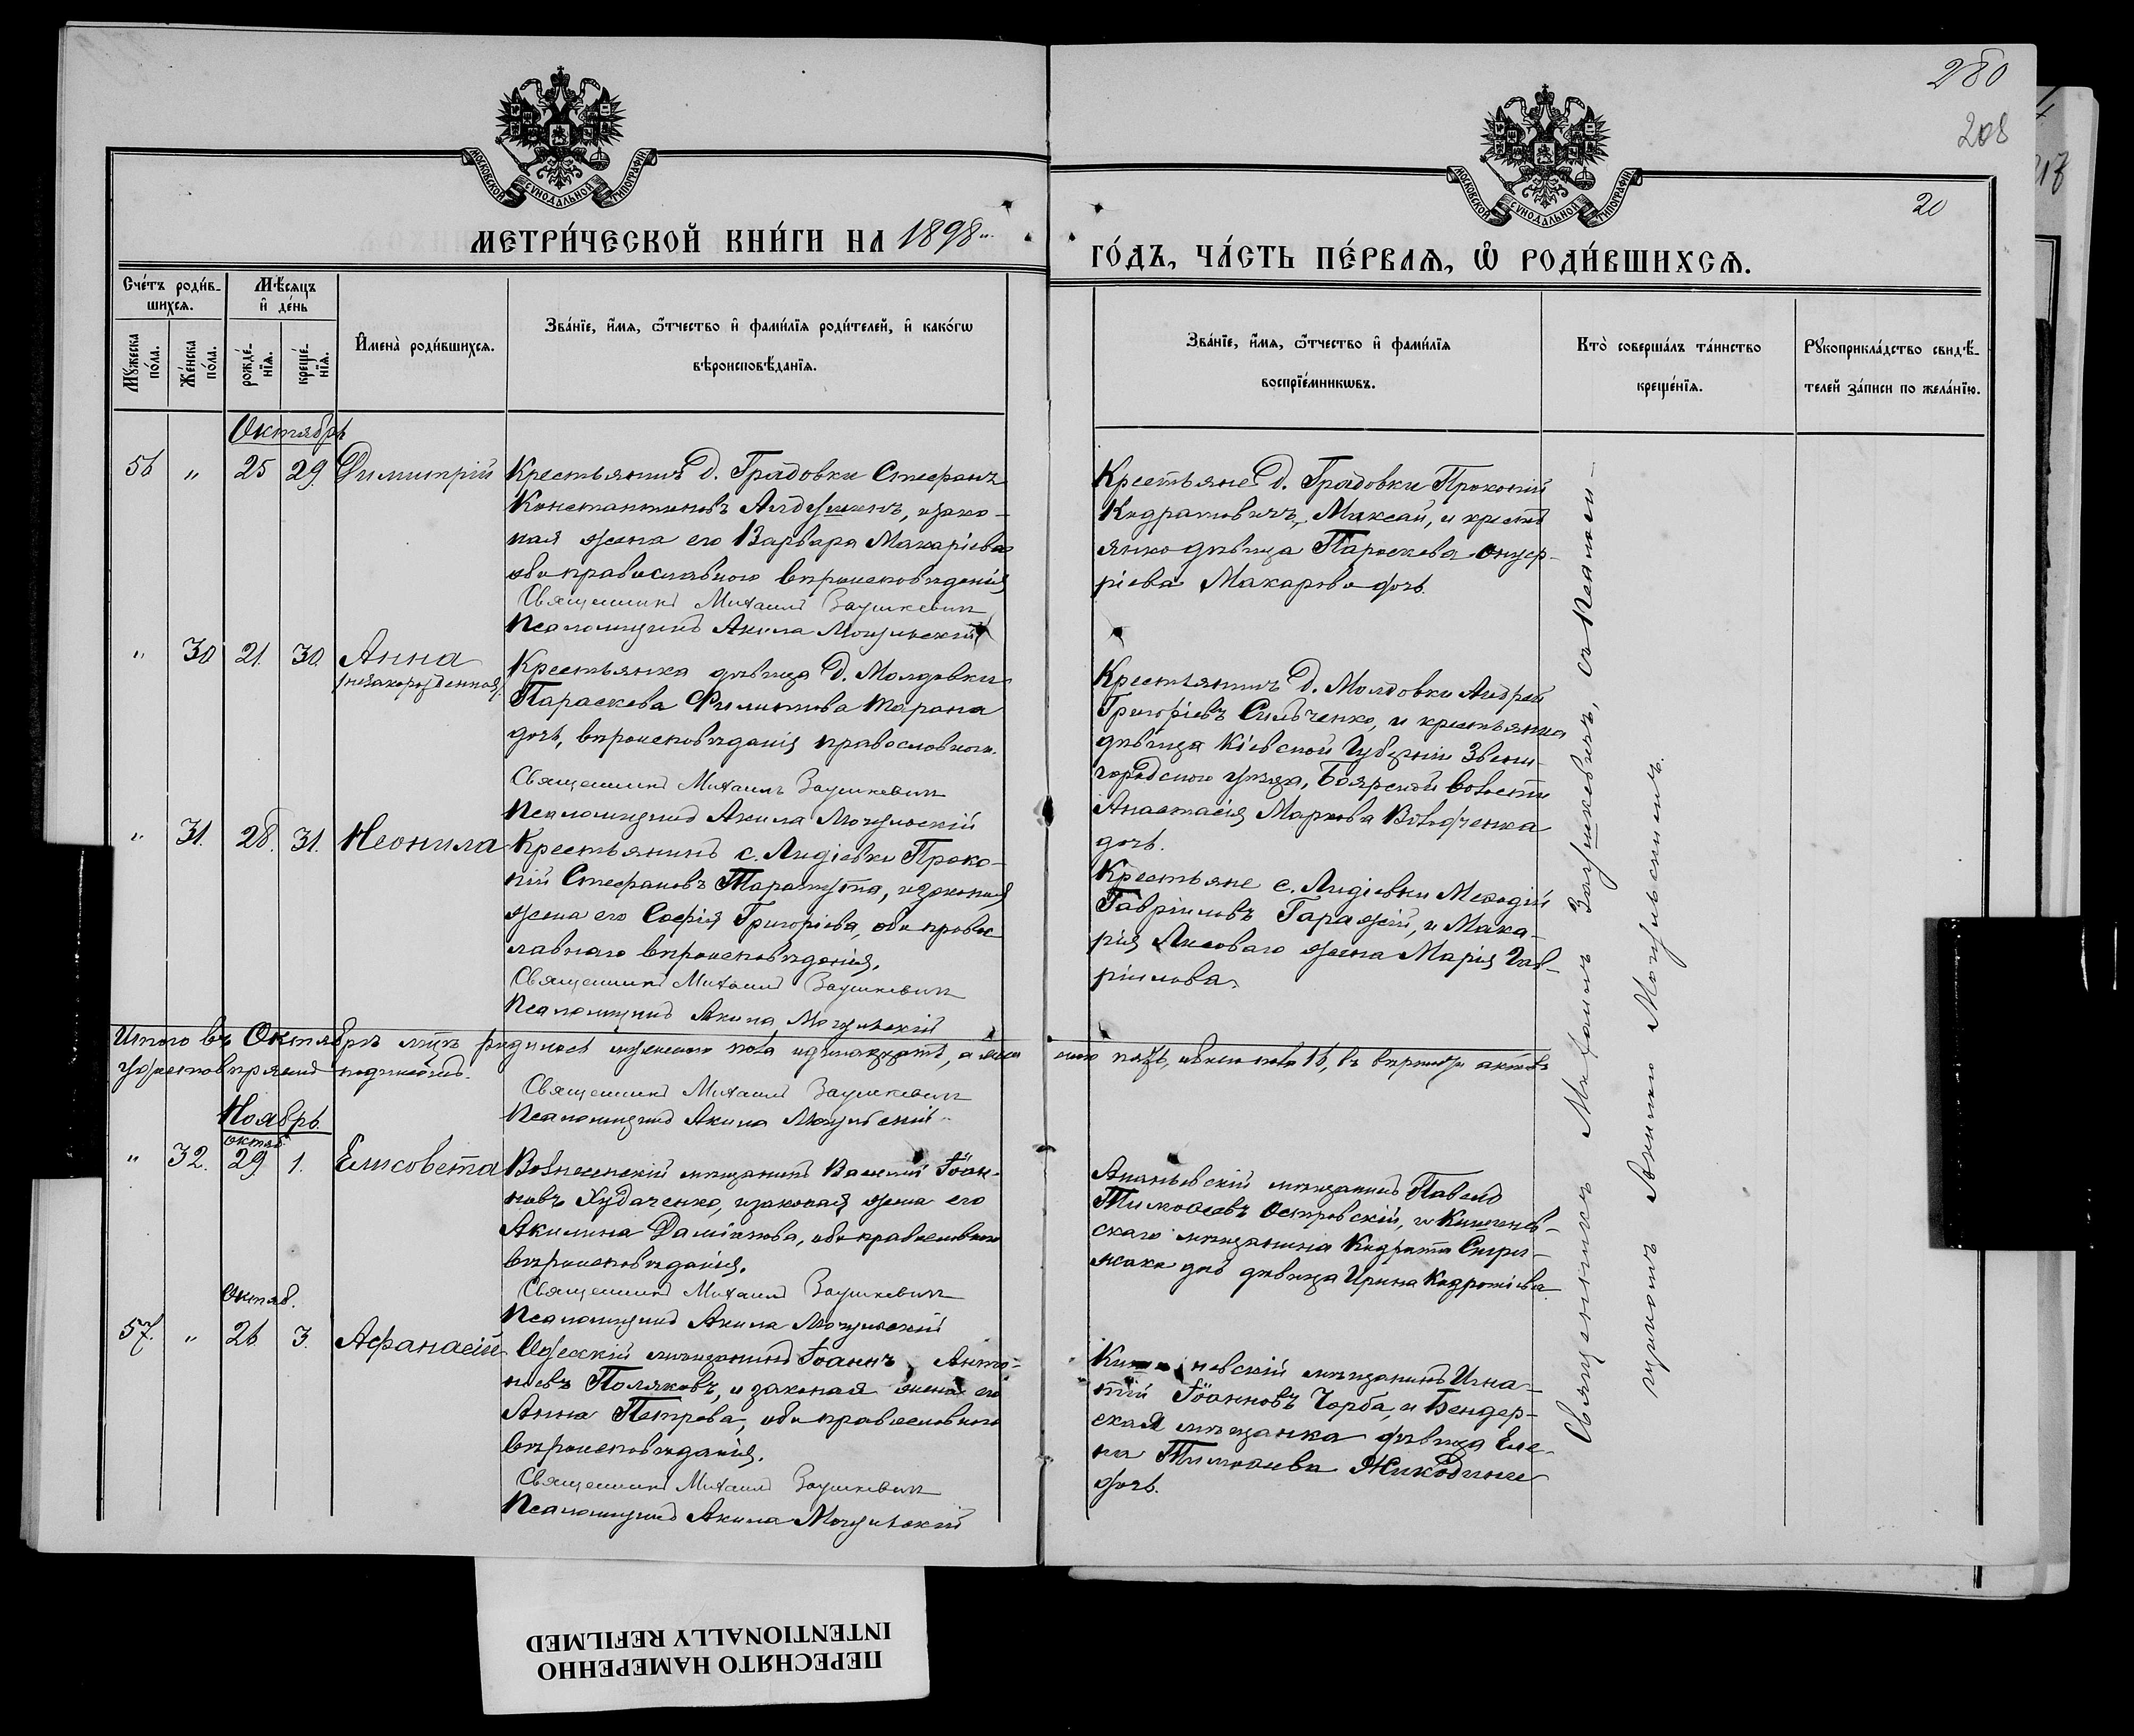 280
208
20
МОСКОВСКОЙ СѴНОДАЛЬНОЙ ТИПОГРАФІИ
МОСКОВСКОЙ СѴНОДАЛЬНОЙ ТИПОГРАФІИ
МЕТРИ́ЧЕСКОЙ КНИ́ГИ НА 1898
ГО́ДЪ, ЧА́СТЬ ПЕ́РВАѦ, Ѡ҆ РОДИ́ВШИХСѦ.
Сче́тъ роди́в-
шихсѧ.
Мѣ́сяцъ
и҆ де́нь
Мꙋ́жеска
по́ла.
Же́нска
по́ла.
рожде́-
нїѧ.
креще́-
нїѧ.
И҆мена̀ роди́вшихсѧ.
Зва́нїе, и҆́мѧ, ѻ҆́тчество и҆ фами́лїѧ роди́телей, и҆ како́гѡ
вѣроисповѣ́данїѧ.
Зва́нїе, и҆́мѧ, ѻ҆́тчество и҆ фами́лїѧ
воспрїе́мникѡвъ.
Кто̀ соверша́лъ та́инство
креще́нїѧ.
Рꙋкоприкла́дство свидѣ́-
телей за́писи по жела́нїю.
Октябрь
56 " 25 29. Димитрій
Крестьянинъ д. Градовки Стефанъ
Константиновъ Алдушинъ, изако-
ная жена его Варвара Макаріева
оба православного вѣроисповѣданія
Священникъ Михаилъ Заушкевич
Псаломщикъ Акила Могульскій
Крестьяне д. Градовки Прокопій
Кодратовичъ Максай, и кресть
янко дѣвица Параскева Онуф-
ріева Макарова дочь.
" 30 21. 30. Анна
(незакорожденная)
Крестьянка дѣвица д. Молдовки
Параскева Филиппова Тарана
дочь, вѣроисповѣданія православного.
Священникъ Михаилъ Заушкевич
Псаломщикъ Акила Могульскій
Крестьянинъ д. Молдовки Андрей
Григоріевъ Сильченко, и крестьянка
дѣвица Кіевской Губерніи Звени-
городского уѣзда, Боярской волости
Анастасія Маркова Володченка
дочь.
" 31. 28. 31. Неонила
Крестьянинъ с. Лидіевки Проко-
пій Стефановъ Таратута, изаконая
жена его Софія Григоріева, оба правос
лавного вѣроисповѣданія.
Священникъ Михаилъ Заушкевич
Псаломщикъ Акила Могульскій
Крестьяне с. Лидіевки Меѳодій
Гавріиловъ Гаражій, и Мака-
рія Лисоваго жена Марія Гав-
ріилова.
Итого въ Октябрѣ мцѣ родилось мужеского пола одинадцать, а жен
ского пять, обоего пола 16, въ вѣрности актовъ
удостовѣряемъ подписомъ.
Священникъ Михаилъ Заушкевич
Псаломщикъ Акила Могульскій
Ноябрь
октяб.
" 32. 29. 1. Елисовета
Вознесенскій мѣщанинъ Василій Іоан-
новъ Худаченко, изаконая жена его
Акилина Даміанова, оба православного
вѣроисповѣданія.
Священникъ Михаилъ Заушкевич
Псаломщикъ Акила Могульскій
Ананьевскій мѣщанинъ Павелъ
Тимоѳеевъ Островскій, и Кишинев-
скаго мѣщанина Кодрата
дѣвица Ирина Кодратіева
Октяб.
57. " 26 3. Афанасій
Одесскій мѣщанинъ Іоаннъ Анто-
ніевъ Поляковъ, и законая жена его
Анна Петрова, оба православного
вѣроисповѣданія.
Священникъ Михаилъ Заушкевич
Псаломщикъ Акила Могульскій
Кишиневскій мѣщанинъ Игна-
тій Іоанновъ Чорба, и Бендер-
ская мѣщанка дѣвица Еле-
на Тимоѳеева
дочь.
Священникъ Михаилъ Заушкевичъ, съ Псалом-
щикомъ Акилою Могульскимъ.
ПЕРЕСНЯТО НАМЕРЕННО
INTENTIONALLY REFILMED